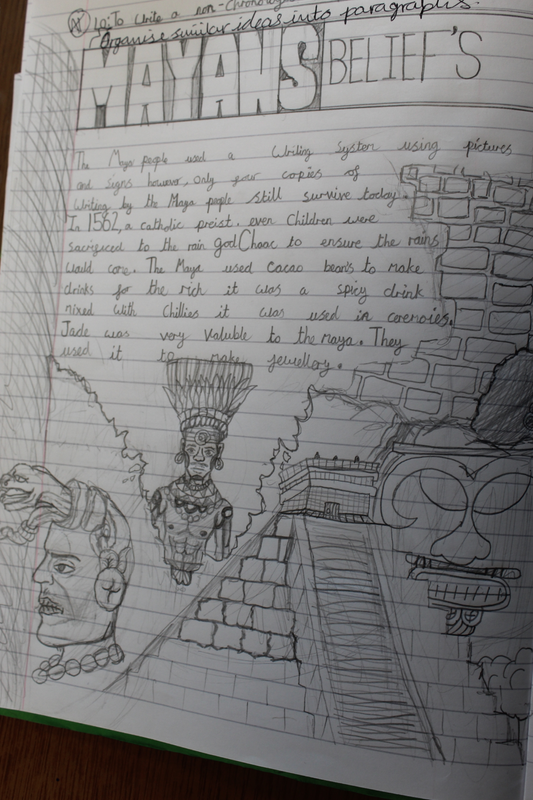 LO: To write a non-chronolog
Organise similar ideas into paragraphs.
MAYANS BELIEF'S
The Maya people used a Writing System using pictures
and signs however, only four copies of
Writing by the Maya people still survive today.
In 1562, a catholic preist. even Children were
sacrificed to the rain god Chaac to ensure the rains
would come. The Maya used Cacao beans to make
drinks for the rich it was a spicy drink
mixed with Chillies it was used in ceremoies.
Jade was very valuble to the maya. They
used it to make jewellery.